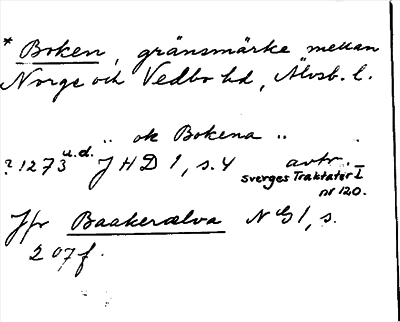 * Boken, gränsmärke mellan
Norge och Vedbo hd, Älvsb. l.
" ok Bokena "
? 1273 u.d. JHD 1, s. 4 avtr. i
Sverges Traktater I
nr 120.
Jfr Baakerælva NG 1, s.
207 f.